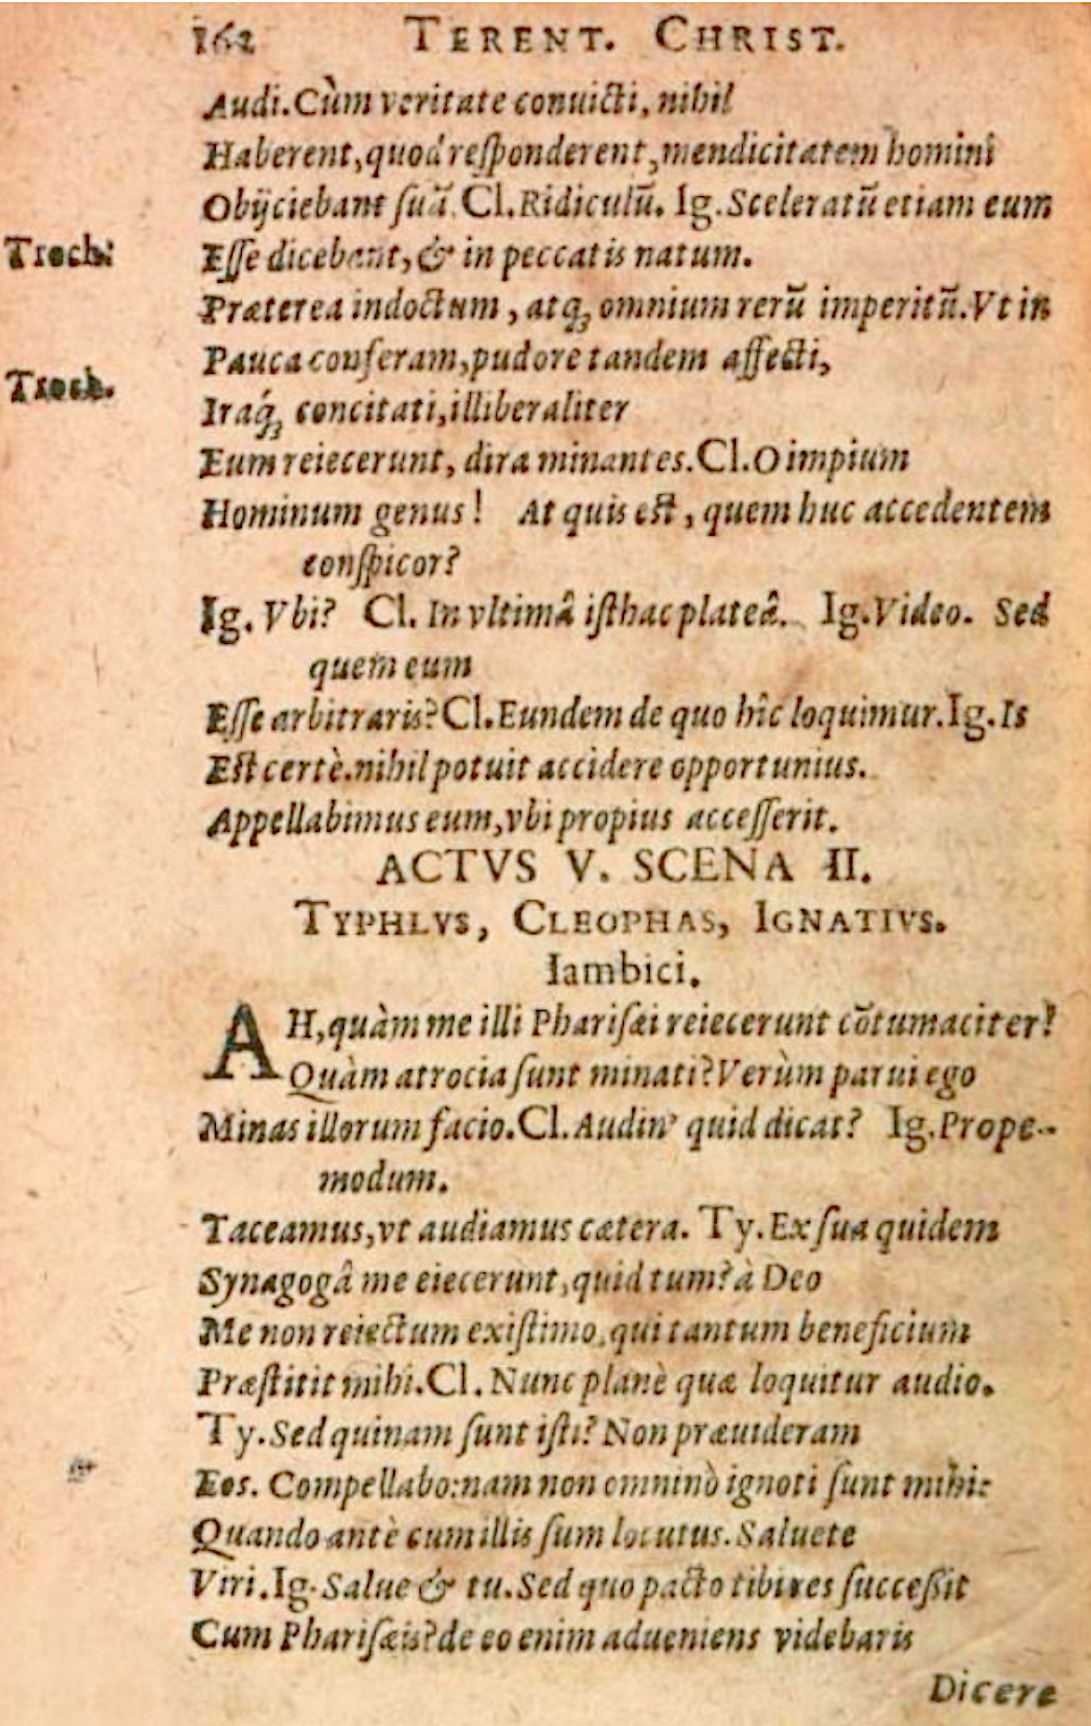 162 TERENT. CHRIST.
Audi. Cùm veritate conuicti, nihil
Haberent, quod responderent, mendicitatem homini
Obijciebant suã. Cl. Ridiculũ. Ig. Sceleratũ etiam eum
Troch: Esse dicebant, & in peccatis natum.
Præterea indoctum, atq; omnium rerũ imperitũ. Vt in
Pauca conferam, pudore tandem affecti,
Troch. Iraq́; concitati, illiberaliter
Eum reiecerunt, dira minantes. Cl. O impium
Hominum genus! At quis est, quem huc accedentem
conspicor?
Ig. Vbi? Cl. In vltimâ isthac plateâ. Ig. Video. Sed
quem eum
Esse arbitraris? Cl. Eundem de quo hîc loquimur. Ig. Is
Est certè. nihil potuit accidere opportunius.
Appellabimus eum, vbi propius accesserit.
ACTVS V. SCENA II.
TYPHLVS, CLEOPHAS, IGNATIVS.
Iambici.
AH, quàm me illi Pharisæi reiecerunt cõtumaciter!
Quàm atrocia sunt minati? Verùm parui ego
Minas illorum facio. Cl. Audin' quid dicat? Ig. Prope-
modum.
Taceamus, vt audiamus cætera. Ty. Ex sua quidem
Synagogâ me eiecerunt, quid tum? à Deo
Me non reiectum existimo, qui tantum beneficium
Præstitit mihi. Cl. Nunc planè quæ loquitur audio.
Ty. Sed quinam sunt isti? Non præuideram
Eos. Compellabo: nam non omninò ignoti sunt mihi:
Quando antè cum illis sum locutus. Saluete
Viri. Ig. Salue & tu. Sed quo pacto tibi res successit
Cum Pharisæis? de eo enim adueniens videbaris
Dicere